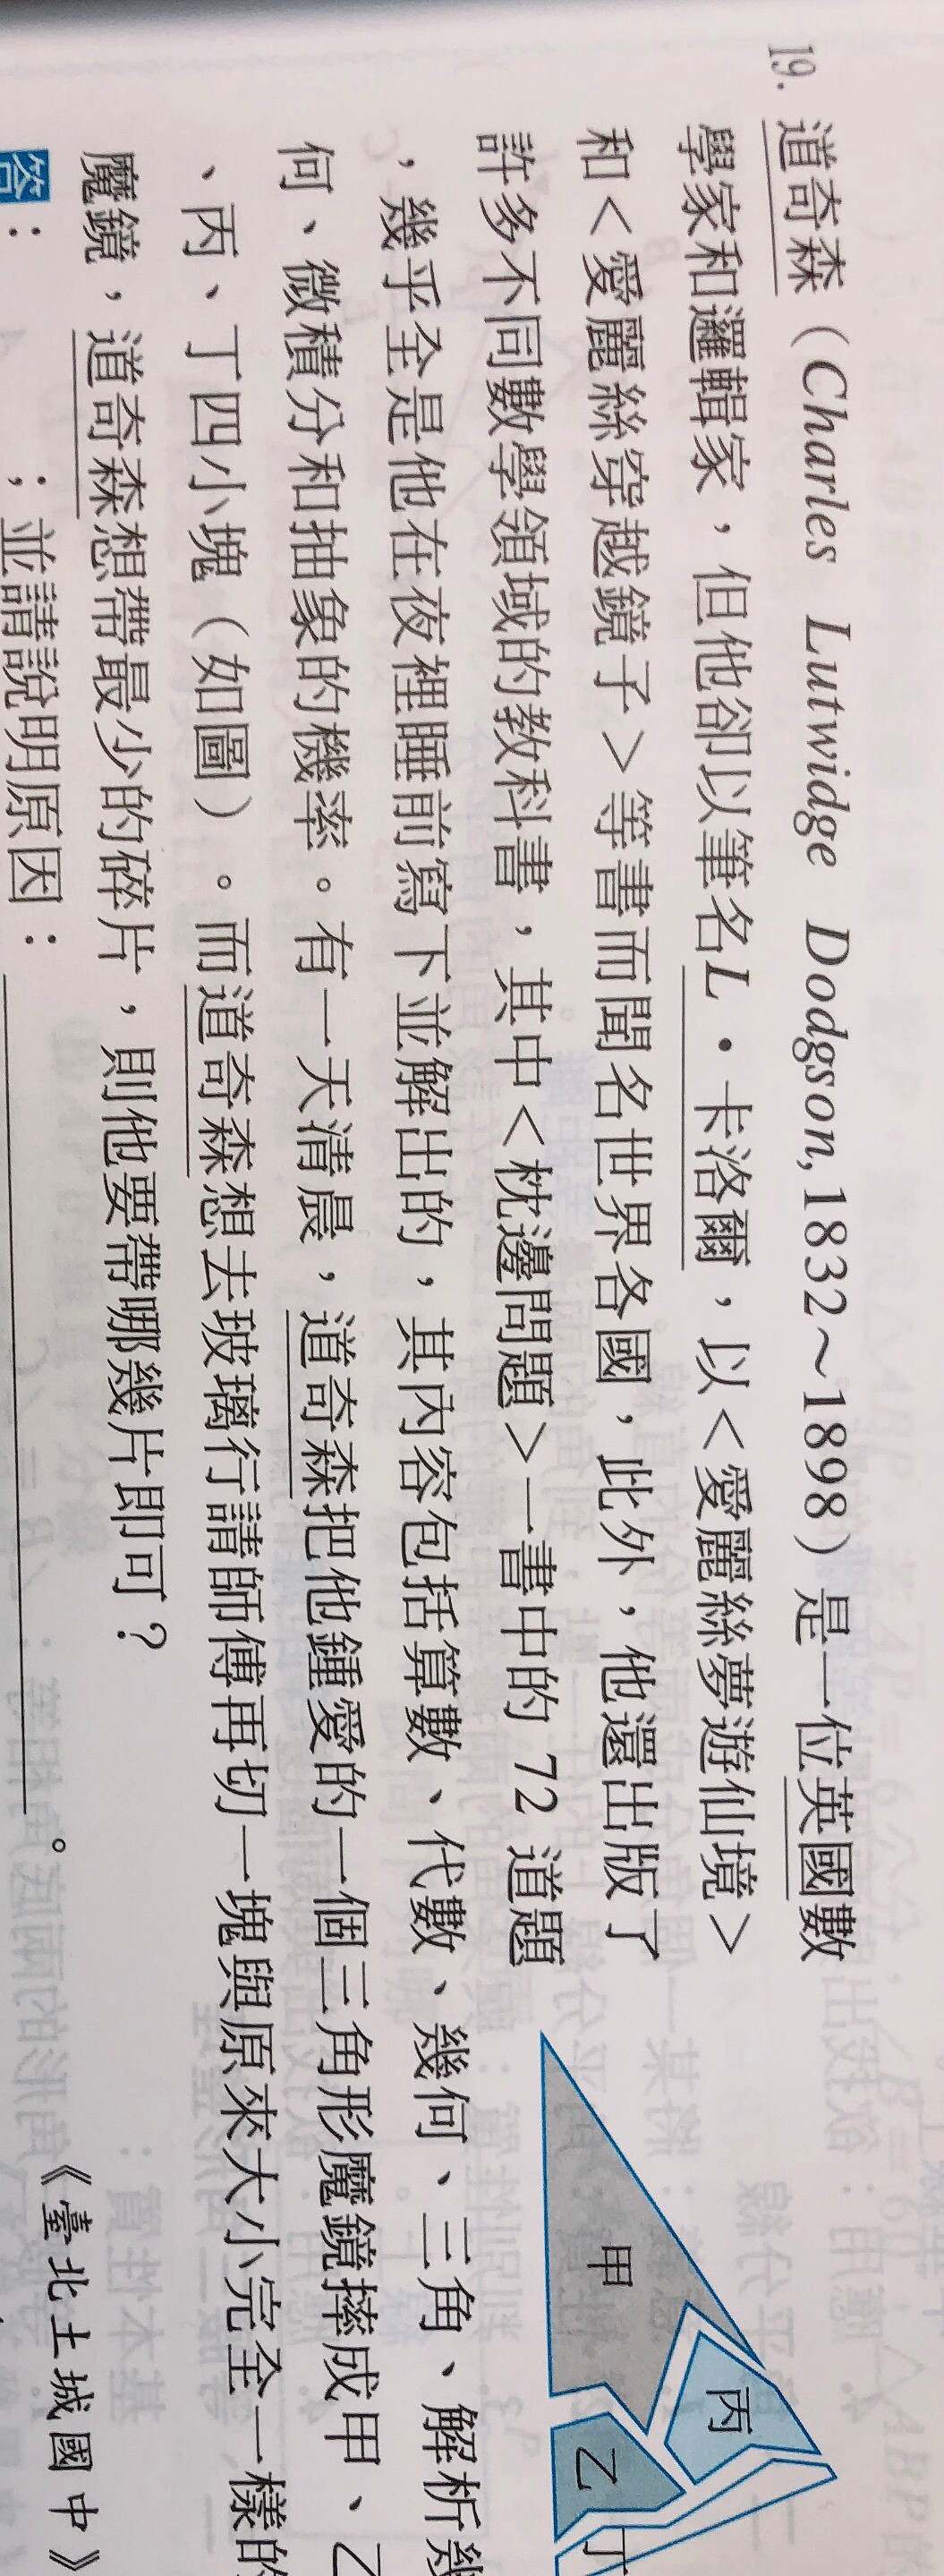 19. 道奇森（Charles Lutwidge Dodgson, 1832～1898）是一位英國數
學家和邏輯家，但他卻以筆名L‧卡洛爾，以<愛麗絲夢遊仙境>
和<愛麗絲穿越鏡子>等書而聞名世界各國，此外，他還出版了
許多不同數學領域的教科書，其中<枕邊問題>一書中的 72 道題
，幾乎全是他在夜裡睡前寫下並解出的，其內容包括算數、代數、幾何、三角、解析幾
何、微積分和抽象的機率。有一天清晨，道奇森把他鍾愛的一個三角形魔鏡摔成甲、乙
、丙、丁四小塊（如圖）。而道奇森想去玻璃行請師傅再切一塊與原來大小完全一樣的
魔鏡，道奇森想帶最少的碎片，則他要帶哪幾片即可？
《臺北土城國中》
答：　　　；並請說明原因：　　　。
甲
丙
乙
丁